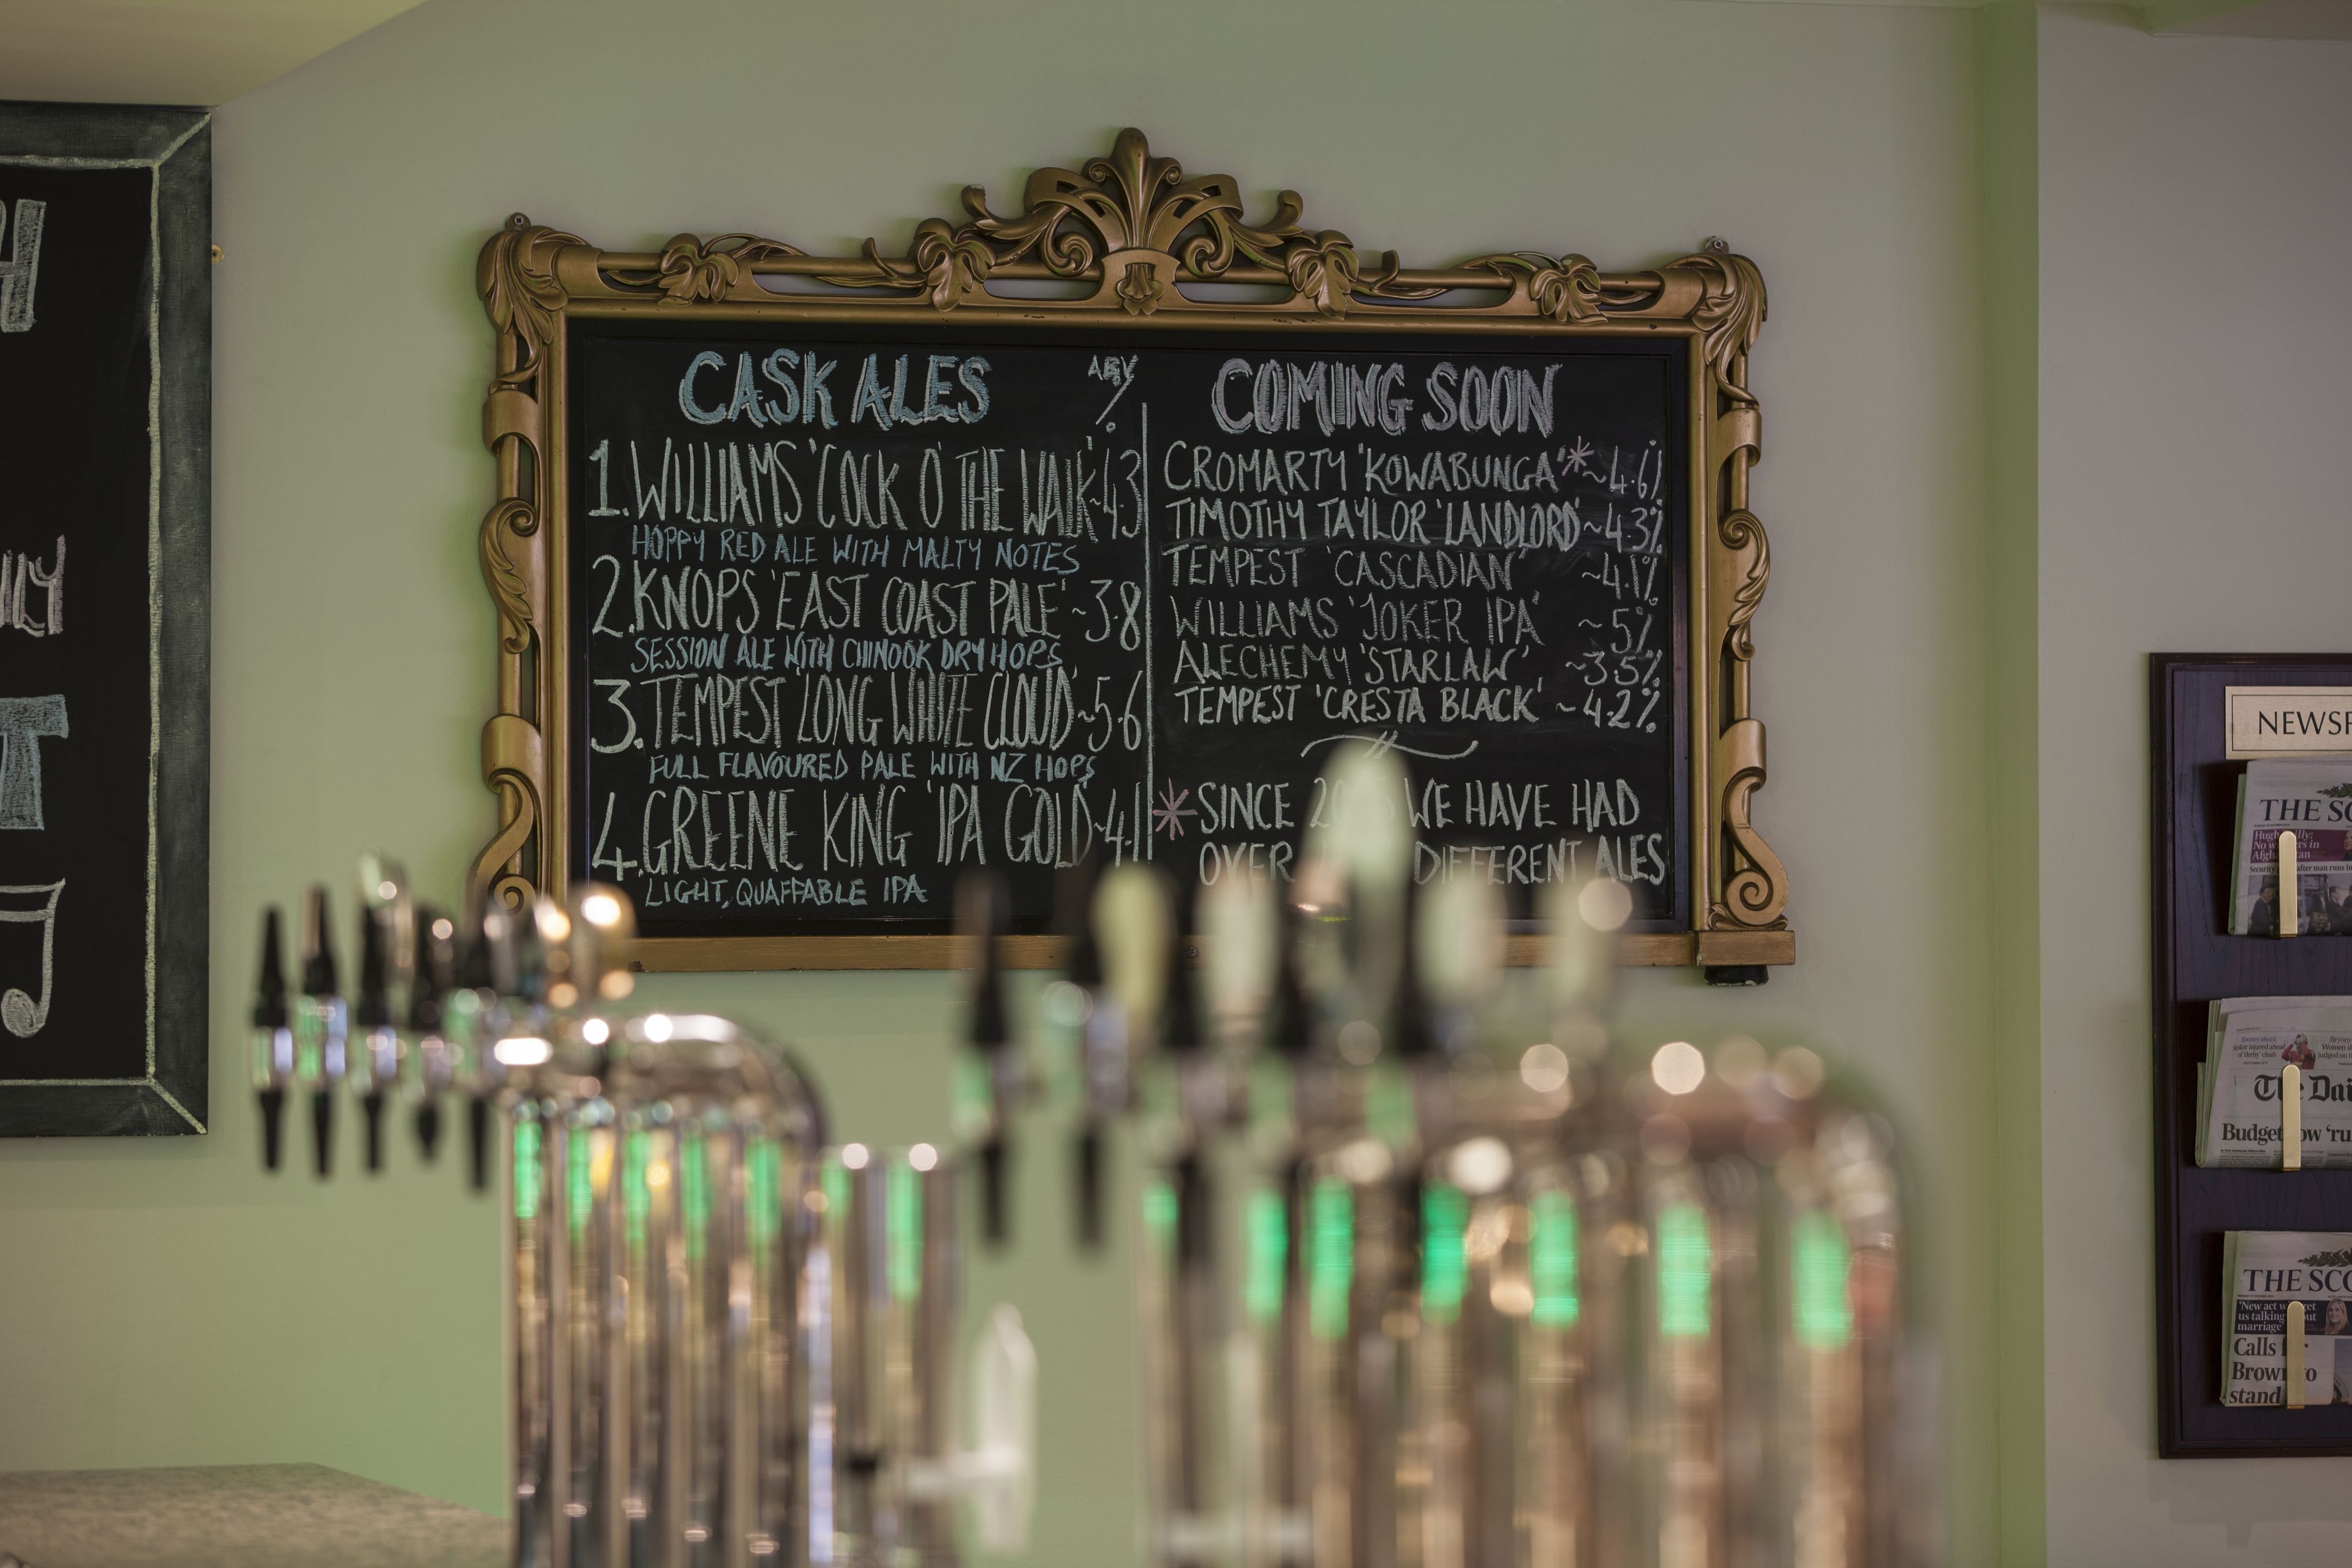 H
ILY
T
CASK ALES ABV %
1. WILLIAMS 'COCK O' THE WALK' ~ 4.3
HOPPY RED ALE WITH MALTY NOTES
2. KNOPS 'EAST COAST PALE' ~ 3.8
SESSION ALE WITH CHINOOK DRY HOPS
3. TEMPEST 'LONG WHITE CLOUD' ~ 5.6
FULL FLAVOURED PALE WITH NZ HOPS
4. GREENE KING 'IPA GOLD' ~ 4.1
LIGHT, QUAFFABLE IPA
COMING SOON
CROMARTY 'KOWABUNGA' * ~ 4.6%
TIMOTHY TAYLOR 'LANDLORD' ~ 4.3%
TEMPEST 'CASCADIAN' ~ 4.1%
WILLIAMS 'JOKER IPA' ~ 5%
ALECHEMY 'STARLAW' ~ 3.5%
TEMPEST 'CRESTA BLACK' ~ 4.2%
* SINCE WE HAVE HAD
OVER DIFFERENT ALES
NEWSP
THE SC
No in
Afghanistan
Security after man runs
The Dai
Budget 'ru
THE SCO
'New act
us talking
marriage'
Calls
Brown to
stand